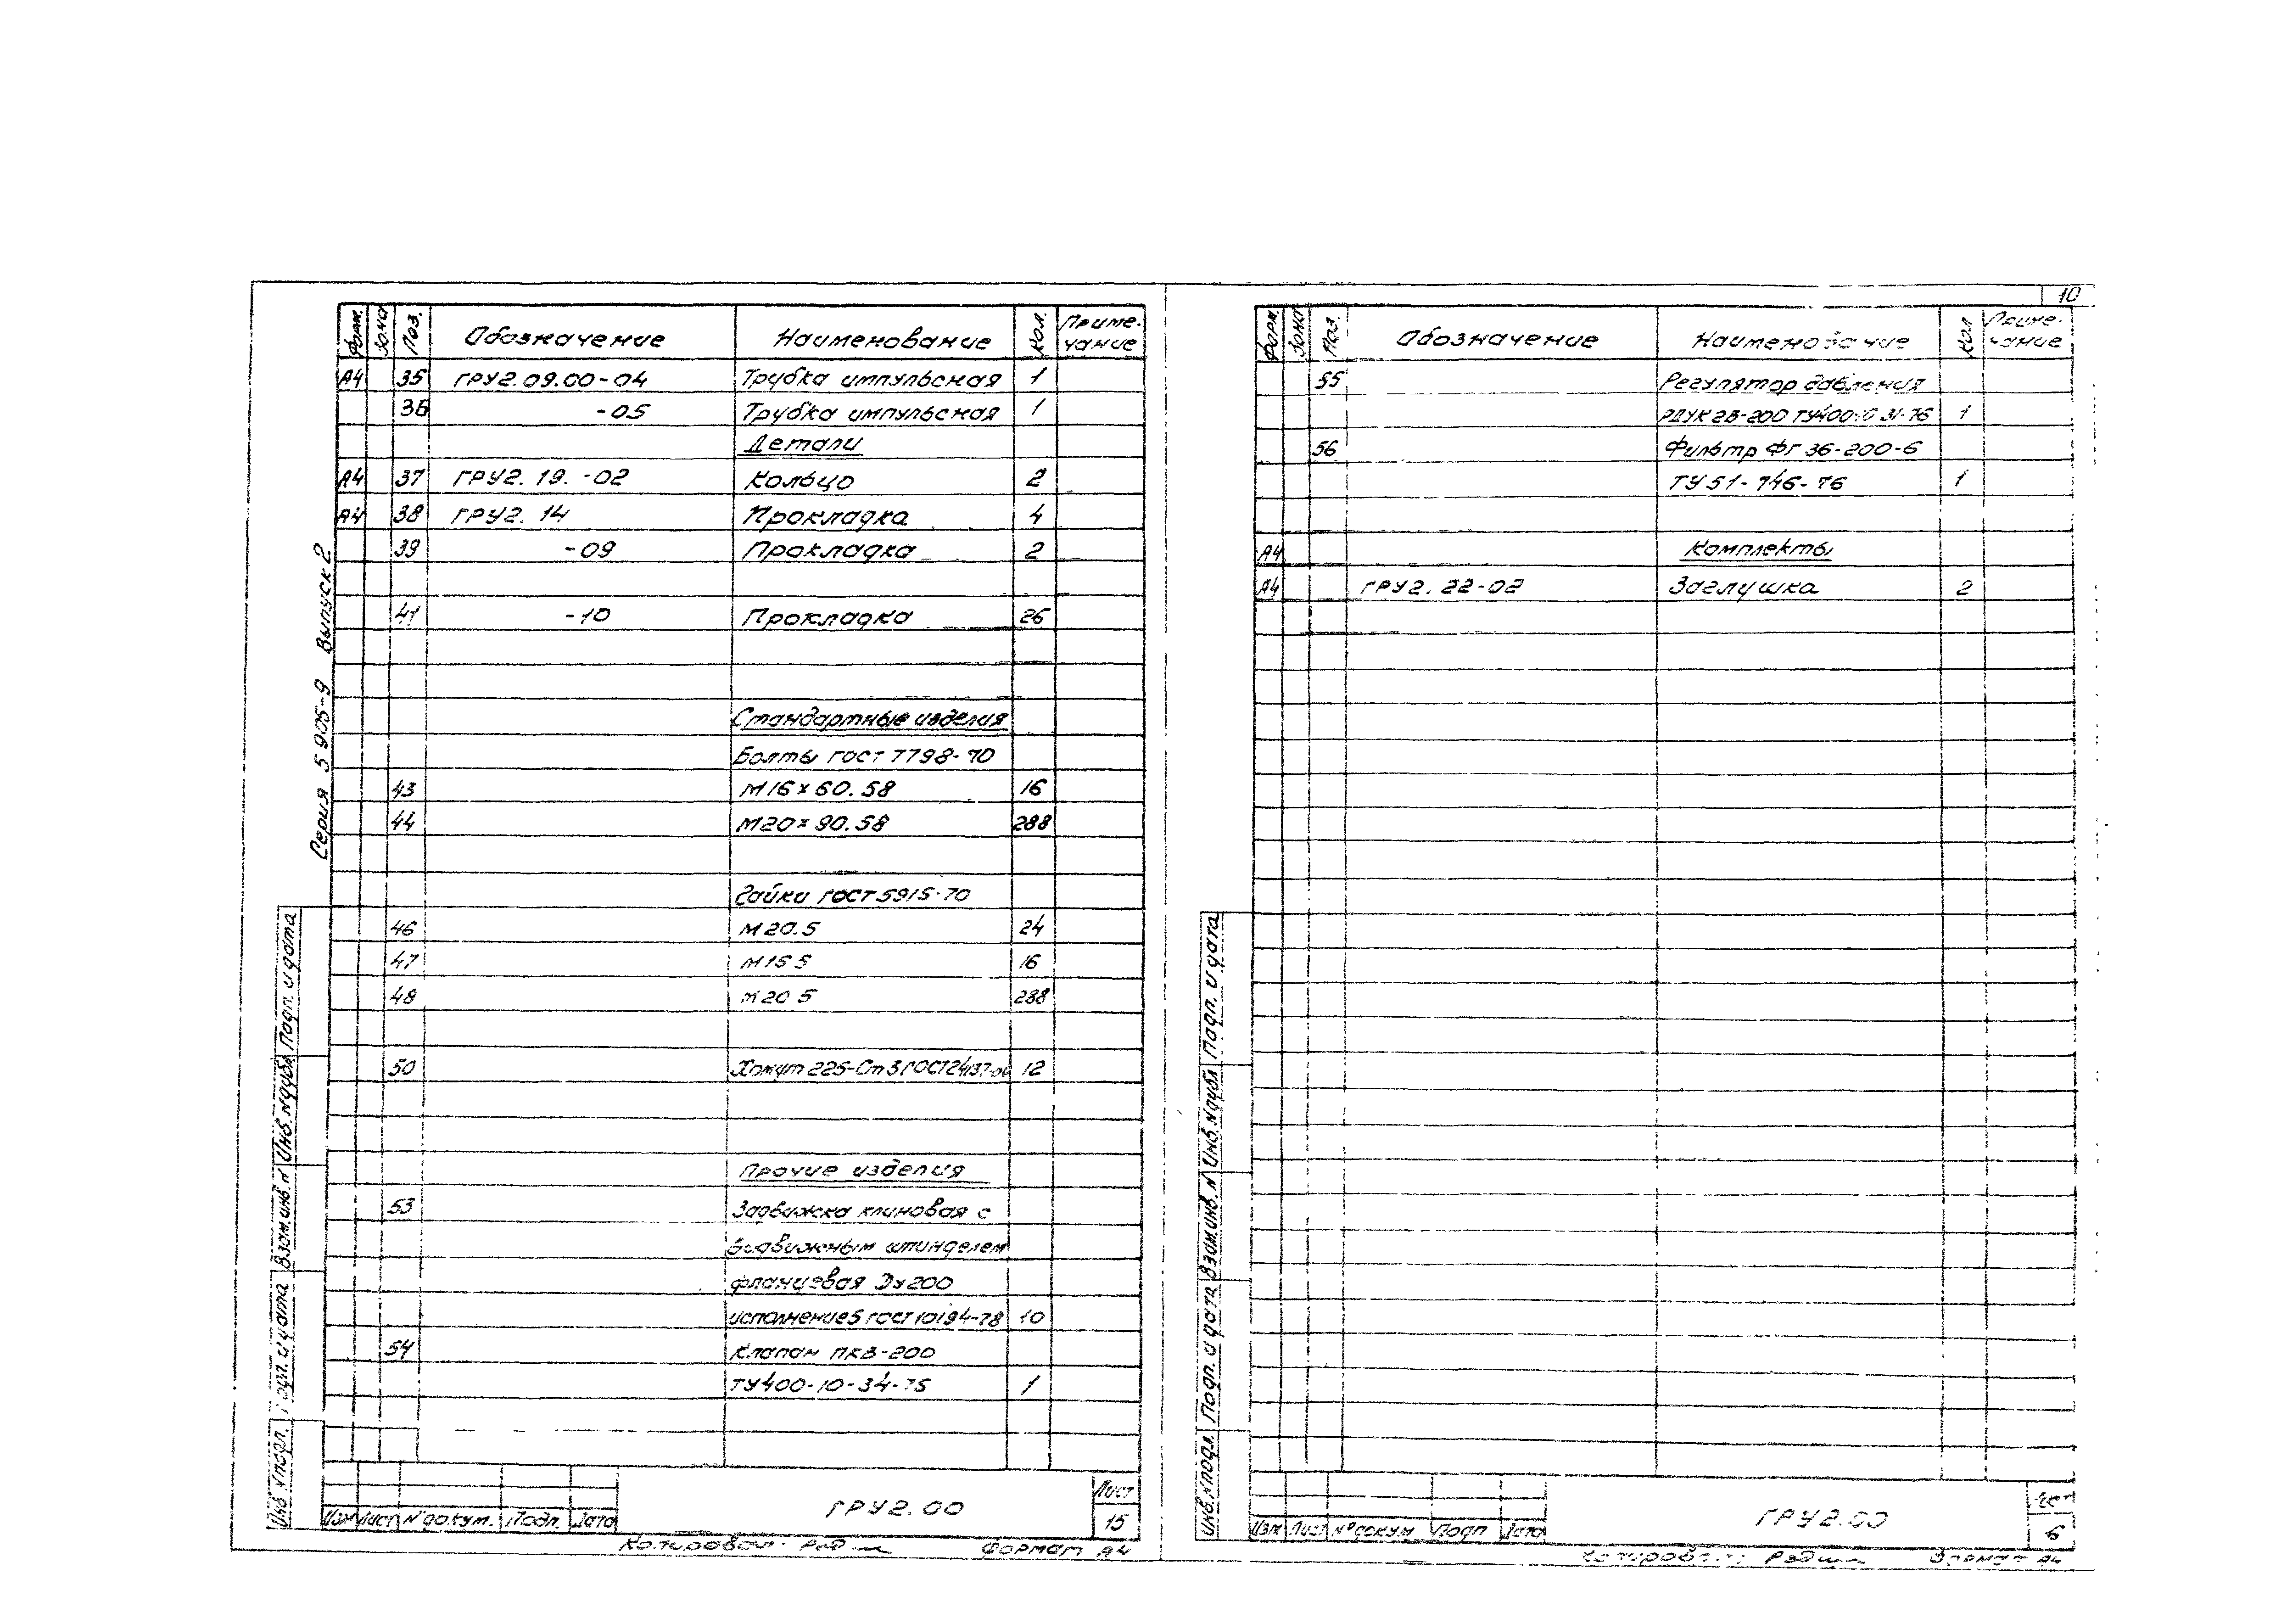 10
Серия 5 905-9 Выпуск 2
Форм. Зона Поз. Обозначение Наименование Кол. Приме-
чание
А4 35 ГРУ2.09.00-04 Трубка импульсная 1
36 -05 Трубка импульсная 1
Детали
А4 37 ГРУ2. 19. -02 Кольцо 2
А4 38 ГРУ2. 14 Прокладка 4
39 -09 Прокладка 2
41 -10 Прокладка 26
Стандартные изделия
Болты ГОСТ 7798-70
43 М16 х 60. 58 16
44 М20 х 90. 58 288
Гайки ГОСТ 5915-70
46 М 20. 5 24
47 М16 5 16
48 М 20 5 288
50 Хомут 225-Ст 3 ГОСТ 24137- 12
Прочие изделия
53 Задвижка клиновая с
шпинделем
фланцевая Ду 200
исполнение 5 ГОСТ 10194-78 10
54 Клапан ПКВ-200
ТУ 400-10-34-75 1
Инв. № подл. Подп. и дата Взам. инв. № Инв. № дубл. Подп. и дата
Изм Лист № докум. Подп. Дата
ГРУ2. 00
Лист
15
Копировал: Формат А4
Форм. Зона Поз. Обозначение Наименование Кол Приме-
чание
55 Регулятор давления
РДУК 2В-200 ТУ400-10 31-76 1
56 Фильтр ФГ 36-200-6
ТУ 51-746-76 1
А4 Комплекты
А4 ГРУ2. 22-02 Заглушка 2
Инв. № подл. Подп. и дата Взам. инв. № Инв. № дубл Подп. и дата
Изм Лист № докум Подп Дата
ГРУ2.00
Лист
6
Копировал: Формат А4